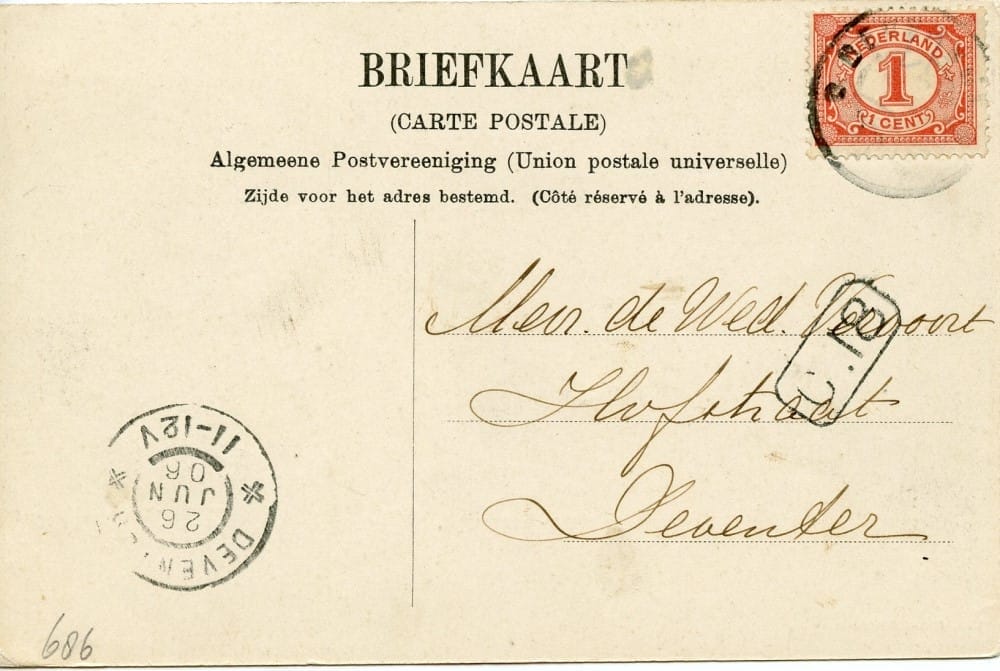 BRIEFKAART
(CARTE POSTALE)
Algemeene Postvereeniging (Union postale universelle)
Zijde voor het adres bestemd. (Côté réservé à l'adresse).
NEDERLAND
1
1 CENT
Mevr. de Wed. Vervoort
Hofstraat
Deventer
11-12V
26
JUN
06
686